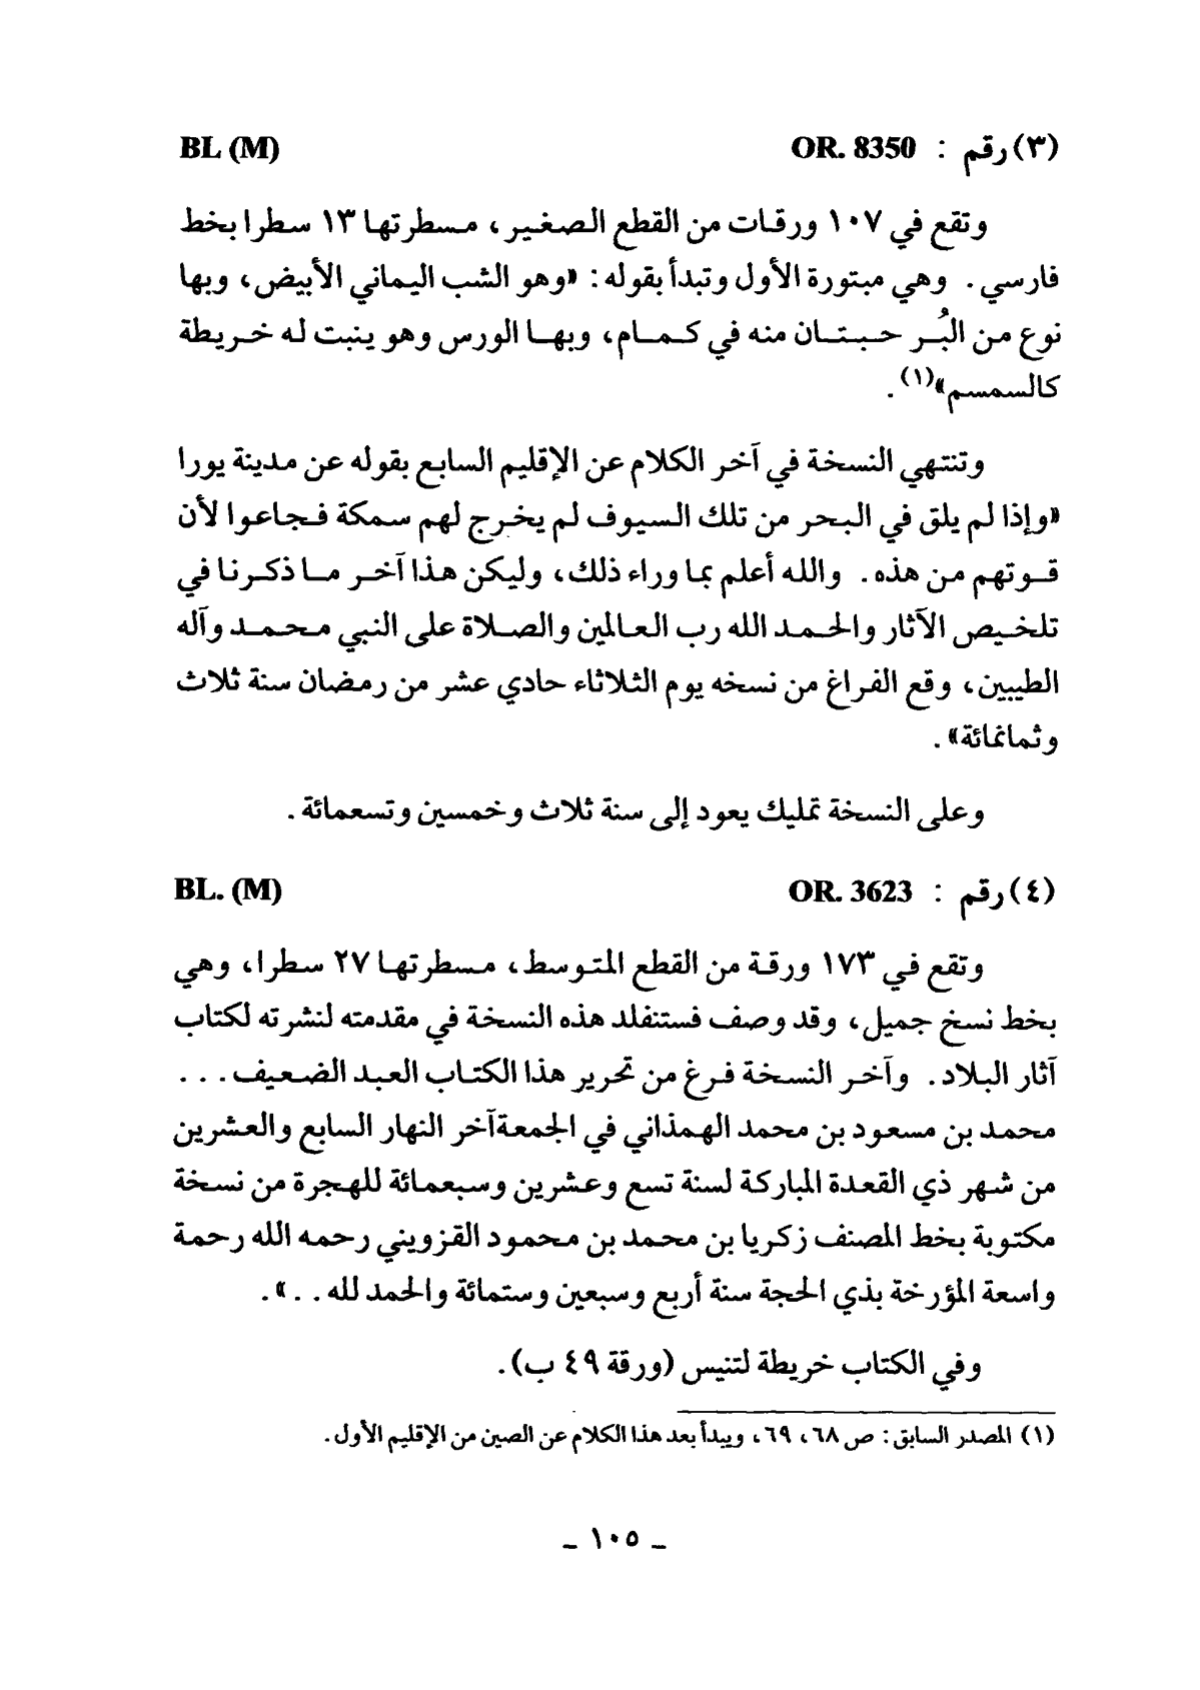 (٣) رقم : OR. 8350 BL (M)
وتقع في ١٠٧ ورقات من القطع الصغير، مسطرتها ١٣ سطرا بخط
فارسي. وهي مبتورة الأول وتبدأ بقوله: «وهو الشب اليماني الأبيض، وبها
نوع من البُر حبتان منه في كمام، وبها الورس وهو ينبت له خريطة
كالسمسم»(١).
وتنتهي النسخة في آخر الكلام عن الإقليم السابع بقوله عن مدينة يورا
«وإذا لم يلق في البحر من تلك السيوف لم يخرج لهم سمكة فجاعوا لأن
قوتهم من هذه. والله أعلم بما وراء ذلك، وليكن هذا آخر ما ذكرنا في
تلخيص الآثار والحمد الله رب العالمين والصلاة على النبي محمد وآله
الطيبين، وقع الفراغ من نسخه يوم الثلاثاء حادي عشر من رمضان سنة ثلاث
وثمانمائة».
وعلى النسخة تمليك يعود إلى سنة ثلاث وخمسين وتسعمائة.
(٤) رقم : OR. 3623 BL. (M)
وتقع في ١٧٣ ورقة من القطع المتوسط، مسطرتها ٢٧ سطرا، وهي
بخط نسخ جميل، وقد وصف فستنفلد هذه النسخة في مقدمته لنشرته لكتاب
آثار البلاد. وآخر النسخة فرغ من تحرير هذا الكتاب العبد الضعيف...
محمد بن مسعود بن محمد الهمذاني في الجمعة آخر النهار السابع والعشرين
من شهر ذي القعدة المباركة لسنة تسع وعشرين وسبعمائة للهجرة من نسخة
مكتوبة بخط المصنف زكريا بن محمد بن محمود القزويني رحمه الله رحمة
واسعة المؤرخة بذي الحجة سنة أربع وسبعين وستمائة والحمد لله..».
وفي الكتاب خريطة لتنيس (ورقة ٤٩ ب).
(١) المصدر السابق: ص ٦٨، ٦٩، ويبدأ بعد هذا الكلام عن الصين من الإقليم الأول.
- ١٠٥ -